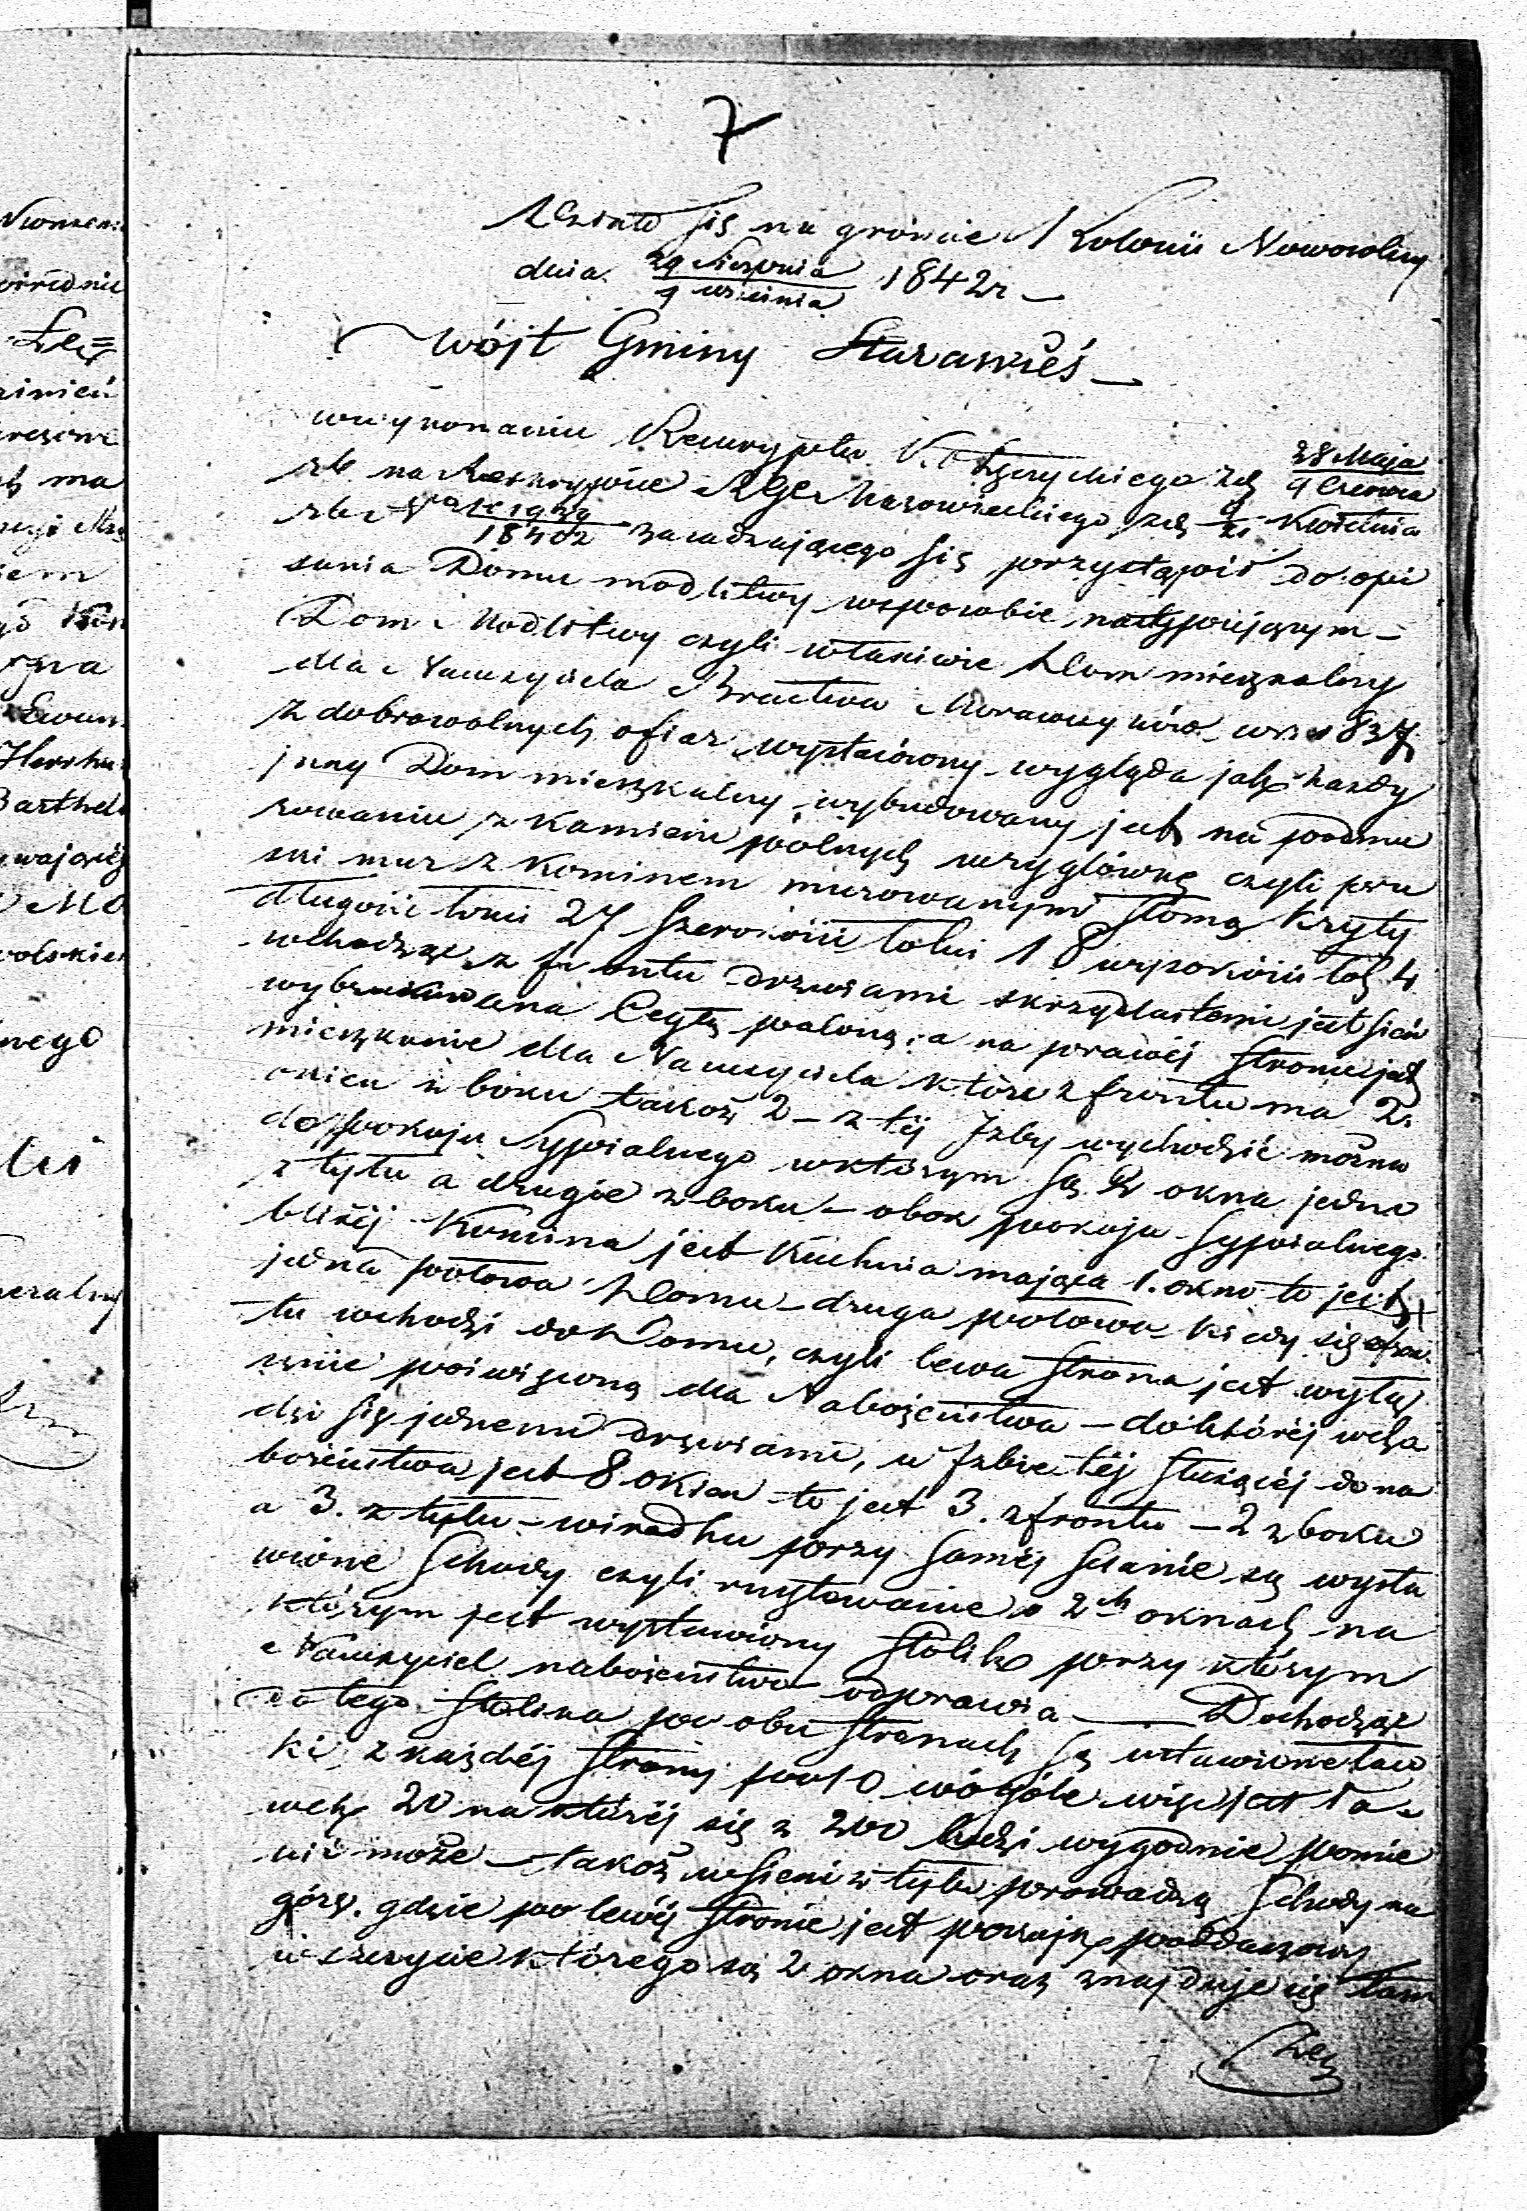 7
Działo się na gróncie Kolonii Nowowolny
dnia 29 Sierpnia / 9 września 1842r —
Wójt Gminy Starawieś —
wwykonaniu Reskryptu 28 Maja / 9 Czerwca
rb. na Reskrypcie Mazowieckiego zd 9/21 Kwietnia
rb. 1842 zasadzającego się przystąpił do opi
sania Domu modlitwy wsposobie następującym —
Dom Modlitwy czyli właściwie Dom mieszkalny
dla Nauczyciela Bractwa Morawczyków wr. 1837
z dobrowolnych ofiar wystawiony wygląda jak każdy
inny Dom mieszkalny, wybudowany jest na podmu
rowaniu z kamieni polnych wryglówkę czyli pru
ski mur z kominem murowanym słomą kryty
długości łokci 27 szerokości łokci 18 wysokości łok 4
wchodząc z frontu drzwiami skrzydlastemi jest sień
wybrukowana Cegłą paloną, a na prawéj stronie jest
mieszkanie dla Nauczyciela które z frontu ma 2
okien z boku takoż 2 — z téj Izby wychodzić można
do pokoju Sypialnego wktórym są 2 okna jedno
z tyłu a drugie z boku — obok pokoju Sypialnego
bliżéj Komina jest Kuchnia mająca 1. okno to jest
jedna połowa Domu — druga połowa kiedy się z fron
tu wchodzi do Domu, czyli lewa strona jest wyłą
cznie poświęcona dla Nabożeństwa — do któréj wcho
dzi się jednemi drzwiami, w Izbie téj służącéj do na
bożeństwa jest 8 okien to jest 3. z frontu — 2 z boku
a 3. z tyłu — wśrodku przy saméj ścianie są wysta
wione Schody czyli rusztowanie o 2ch oknach na
którym jest wystawiony Stolik przy którym
Nauczyciel nabożeństwo odprawia — Dochodząc
do tego Stolika po obu stronach są ustawione ław
ki z każdéj strony po 10 wógóle więc jest ła
wek 20 na któréj się z 200 ludzi wygodnie pomie
ścić może — takoż wsieni z tyłu prowadzą Schody na
górę. gdzie po lewéj stronie jest pokoik poddaszowy
w szczycie którego są 2 okna oraz znajduje się tam